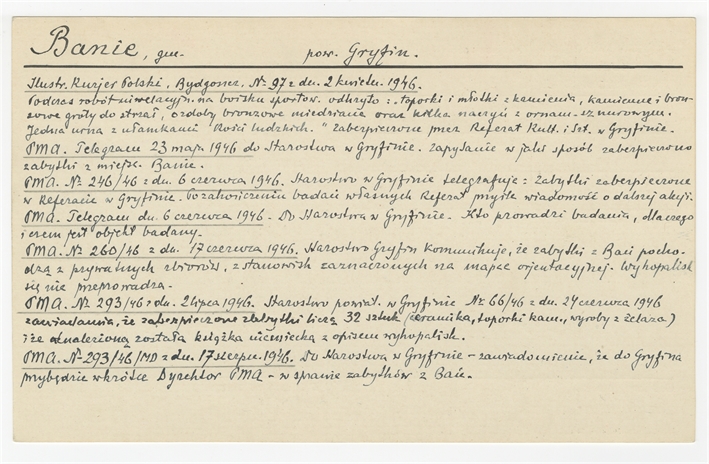 Banie, gm. pow. Gryfin.
Ilustr. Kurjer Polski, Bydgoszcz, Nr 97 z dn. 2 kwietn. 1946.
Podczas robót niwelacyjn. na boisku sportow. odkryto: "toporki i młotki z kamienia, kamienne i bron-
zowe groty do strzał, ozdoby bronzowe miedziane oraz kilka naczyń z ornam. sznurowym.
Jedna urna z ułamkami "kości ludzkich." Zabezpieczone przez Referat Kult. i Szt. w Gryfinie.
PMA. Telegram 23 maja 1946 do Starostwa w Gryfinie. Zapytanie w jaki sposób zabezpieczono
zabytki z miejsc. Banie.
PMA. Nr 246/46 z dn. 6 czerwca 1946. Starostwo w Gryfinie telegrafuje: Zabytki zabezpieczone
w Referacie w Gryfinie. Po zakończeniu badań własnych Referat prześle wiadomość o dalszej akcji.
PMA. Telegram dn. 6 czerwca 1946. Do Starostwa w Gryfinie. Kto prowadzi badania, dlaczego
i czem jest objekt badany.
PMA. Nr 260/46 z dn. 17 czerwca 1946. Starostwo Gryfin komunikuje, że zabytki z Bań pocho-
dzą z prywatnych zbiorów, z stanowisk zaznaczonych na mapce orjentacyjnej. Wykopalisk
się nie przeprowadza.
PMA. Nr 293/46 z dn. 2 lipca 1946. Starostwo powiat. w Gryfinie Nr 66/46 z dn. 24 czerwca 1946
zawiadamia, że zabezpieczone zabytki liczą 32 sztuk (ceramika, toporki kam., wyroby z żelaza)
i że odnaleziona została książka niemiecka z opisem wykopalisk.
PMA. Nr 293/46/MD z dn. 17 sierpn. 1946. Do Starostwa w Gryfinie – zawiadomienie, że do Gryfina
przybędzie wkrótce Dyrektor PMA – w sprawie zabytków z Bań.